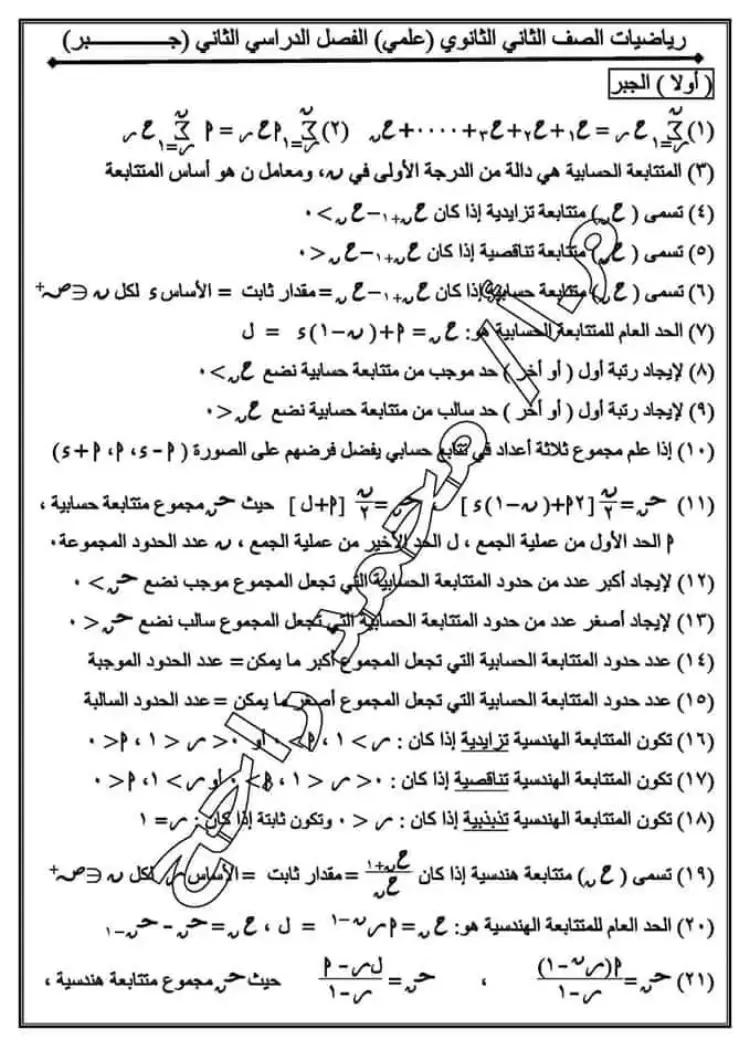 رياضيات الصف الثاني الثانوي (علمي) الفصل الدراسي الثاني (جـــــــبر)
( أولا ) الجبر
(١) ن∑ر=١ ح ر = ح١+ح٢+ح٣+٠٠٠٠+ح ن (٢) ن∑ر=١ ٢ ح ر = ٢ ن∑ر=١ ح ر
(٣) المتتابعة الحسابية هي دالة من الدرجة الأولى في ن، ومعامل ن هو أساس المتتابعة
(٤) تسمى ( ح ن) متتابعة تزايدية إذا كان ح ن+١ − ح ن > ٠
(٥) تسمى ( ح ن) متتابعة تناقصية إذا كان ح ن+١ − ح ن < ٠
(٦) تسمى ( ح ن) متتابعة حسابية إذا كان ح ن+١ − ح ن = مقدار ثابت = الأساس ء لكل ن ∈ ص+
(٧) الحد العام للمتتابعة الحسابية هو: ح ن = م+( ن−١) ء = ل
(٨) لإيجاد رتبة أول ( أو أخر ) حد موجب من متتابعة حسابية نضع ح ن > ٠
(٩) لإيجاد رتبة أول ( أو أخر ) حد سالب من متتابعة حسابية نضع ح ن < ٠
(١٠) إذا علم مجموع ثلاثة أعداد في تتابع حسابي يفضل فرضهم على الصورة ( م - ء ، م ، م + ء)
(١١) حـن = ن/٢ [ ٢م+( ن−١) ء ] ، حـن = ن/٢ [ م+ل ] حيث حـن مجموع متتابعة حسابية ،
م الحد الأول من عملية الجمع ، ل الحد الأخير من عملية الجمع ، ن عدد الحدود المجموعة٠
(١٢) لإيجاد أكبر عدد من حدود المتتابعة الحسابية التي تجعل المجموع موجب نضع حـن > ٠
(١٣) لإيجاد أصغر عدد من حدود المتتابعة الحسابية التي تجعل المجموع سالب نضع حـن < ٠
(١٤) عدد حدود المتتابعة الحسابية التي تجعل المجموع أكبر ما يمكن = عدد الحدود الموجبة
(١٥) عدد حدود المتتابعة الحسابية التي تجعل المجموع أصغر ما يمكن = عدد الحدود السالبة
(١٦) تكون المتتابعة الهندسية تزايدية إذا كان : ر > ١ ، م > ٠ أو ٠ < ر < ١ ، م < ٠
(١٧) تكون المتتابعة الهندسية تناقصية إذا كان : ٠ < ر < ١ ، م > ٠ أو ر > ١، م < ٠
(١٨) تكون المتتابعة الهندسية تذبذبية إذا كان : ر < ٠ وتكون ثابتة إذا كان : ر = ١
(١٩) تسمى ( ح ن) متتابعة هندسية إذا كان ح ن+١ / ح ن = مقدار ثابت = الأساس ر لكل ن ∈ ص+
(٢٠) الحد العام للمتتابعة الهندسية هو: ح ن = م ر ن−١ = ل ، ح ن = حـن - حـن−١
(٢١) حـن = م(ر ن−١) / ر−١ ، حـن = ل ر − م / ر−١ حيث حـن مجموع متتابعة هندسية ،